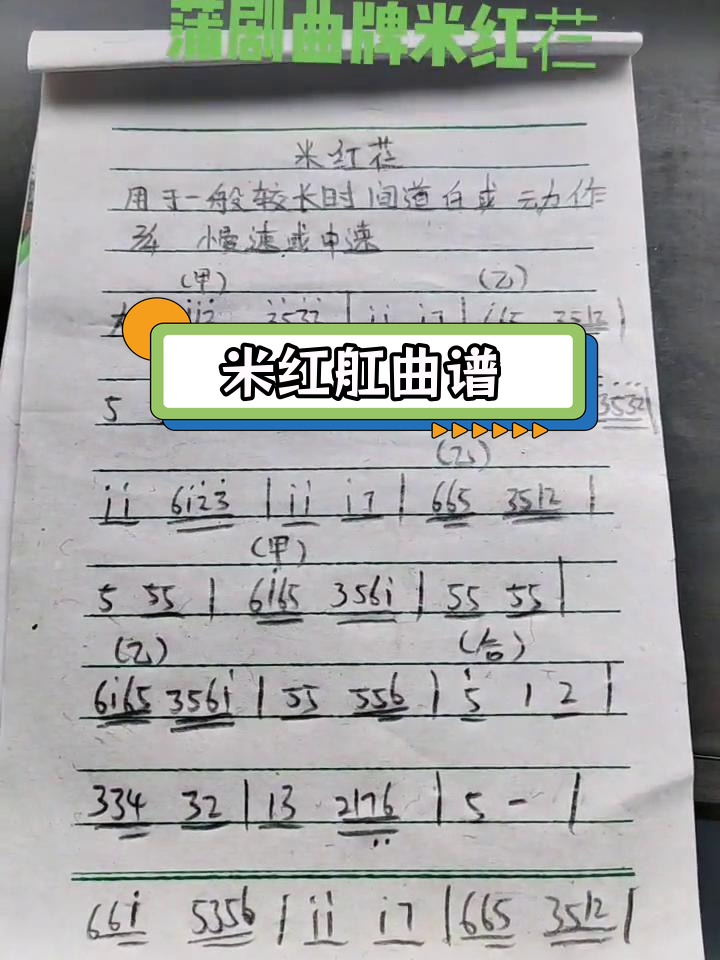 蒲剧曲牌米红芢
米红芢
用于一般较长时间道白或动作
2/4 慢速或中速
(甲) (乙)
i̇i̇2̇ 3̇5̇3̇2̇ | i̇i̇ i̇7 | i̇65 3512 |
米红舡曲谱
5 3̇5̇3̇2̇ |
(乙)
i̇i̇ 6i̇2̇3̇ | i̇i̇ i̇7 | 665 3512 |
(甲)
5 55 | 6i̇65 356i̇ | 55 55 |
(乙) (合)
6i̇65 356i̇ | 55 556 | 5̇ 1 2 |
334 32 | 13 217̣6̣ | 5 - |
66i̇ 5356 | i̇i̇ i̇7 | 665 3512 |